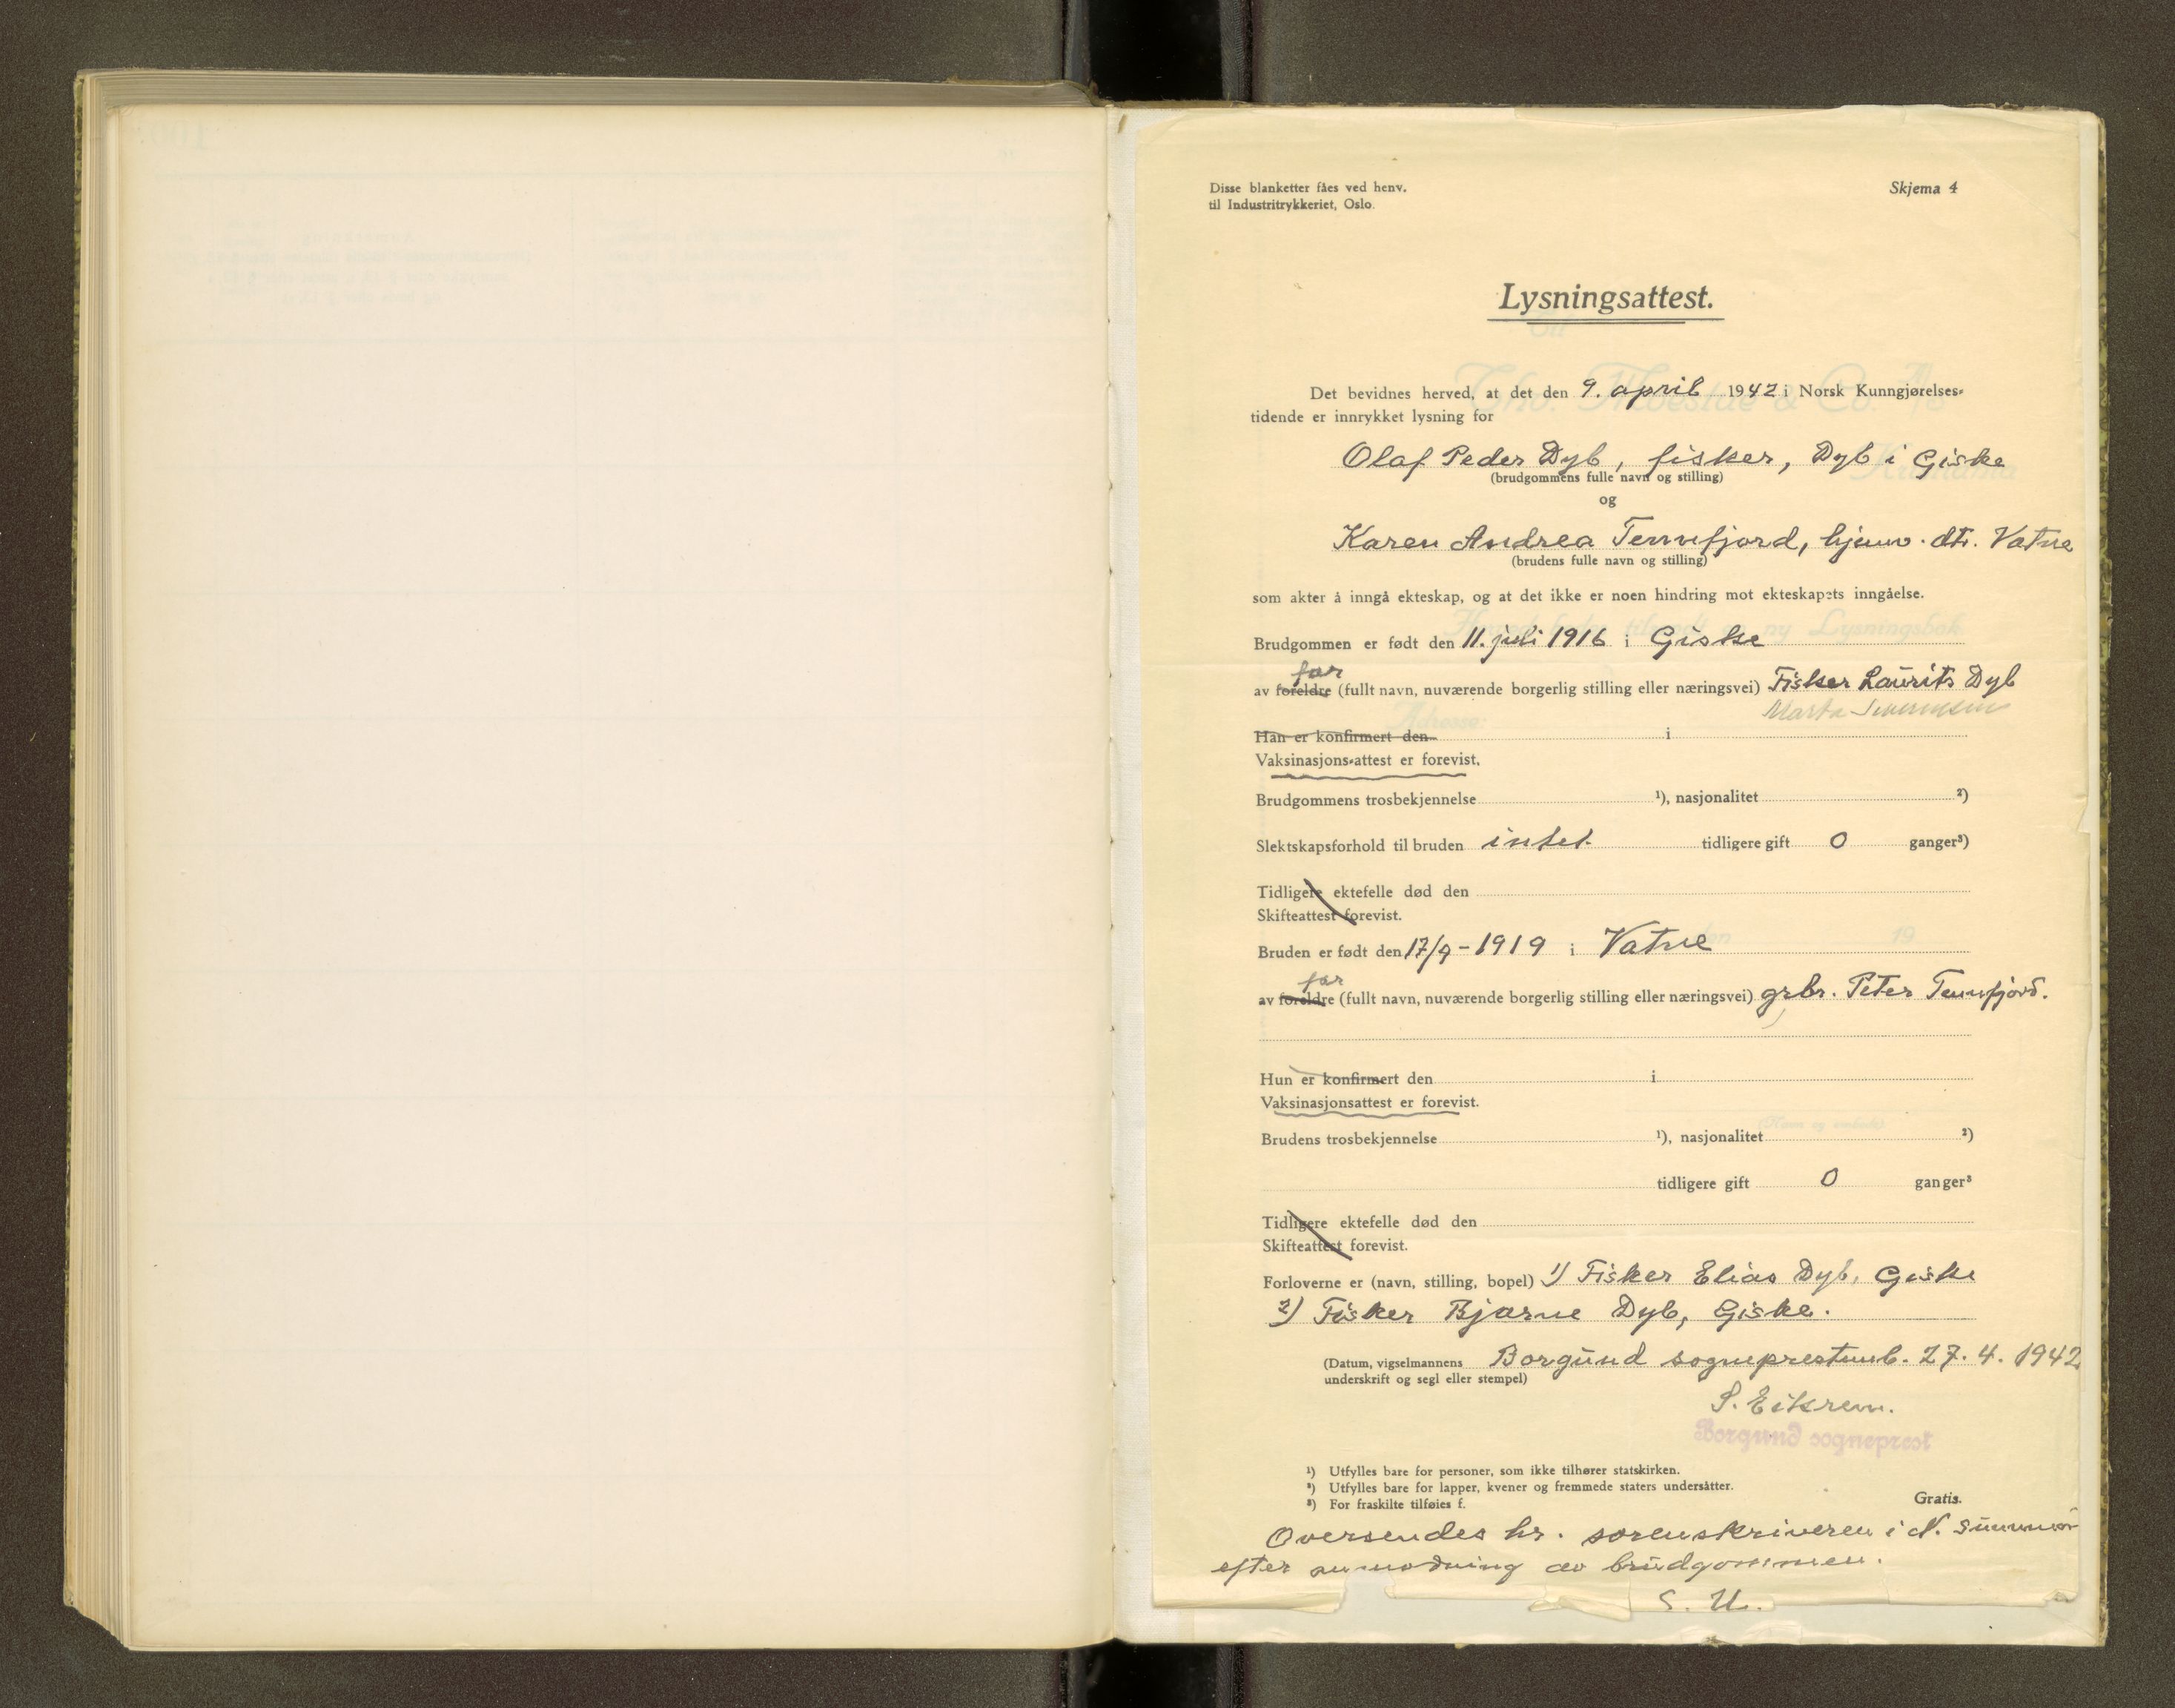 Disse blanketter fåes ved henv.
til Industritrykkeriet, Oslo.
Skjema 4
Lysningsattest.
Det bevidnes herved, at det den 9. april 1942 i Norsk Kunngjørelses-
tidende er innrykket lysning for
Olaf Peder Dyb, fisker, Dyb i Giske
(brudgommens fulle navn og stilling)
og
Karen Andrea Tennfjord, hjemv. dtr. Vatne
(brudens fulle navn og stilling)
som akter å inngå ekteskap, og at det ikke er noen hindring mot ekteskapets inngåelse.
Brudgommen er født den 11. juli 1916 i Giske
far
av foreldre (fullt navn, nuværende borgerlig stilling eller næringsvei) Fisker Laurits Dyb
Marta
Han er konfirmert den i
Vaksinasjons-attest er forevist.
Brudgommens trosbekjennelse ¹), nasjonalitet ²)
Slektskapsforhold til bruden intet tidligere gift 0 ganger³)
Tidligere ektefelle død den
Skifteattest forevist.
Bruden er født den 17/9-1919 i Vatne
far
av foreldre (fullt navn, nuværende borgerlig stilling eller næringsvei) grbr. Peter Tennfjord.
Hun er konfirmert den i
Vaksinasjonsattest er forevist.
Brudens trosbekjennelse ¹), nasjonalitet ²)
tidligere gift 0 ganger³
Tidligere ektefelle død den
Skifteattest forevist.
Forloverne er (navn, stilling, bopel) 1) Fisker Elias Dyb, Giske
2) Fisker Bjarne Dyb, Giske.
(Datum, vigselmannens Borgund sogneprestemb. 27. 4. 1942
underskrift og segl eller stempel)
S. Eikrem.
Borgund sogneprest
¹) Utfylles bare for personer, som ikke tilhører statskirken.
²) Utfylles bare for lapper, kvener og fremmede staters undersåtter.
³) For fraskilte tilføies f.
Gratis.
Oversendes hr. sorenskriveren i N. Sunnmør
efter anmodning av brudgommen.